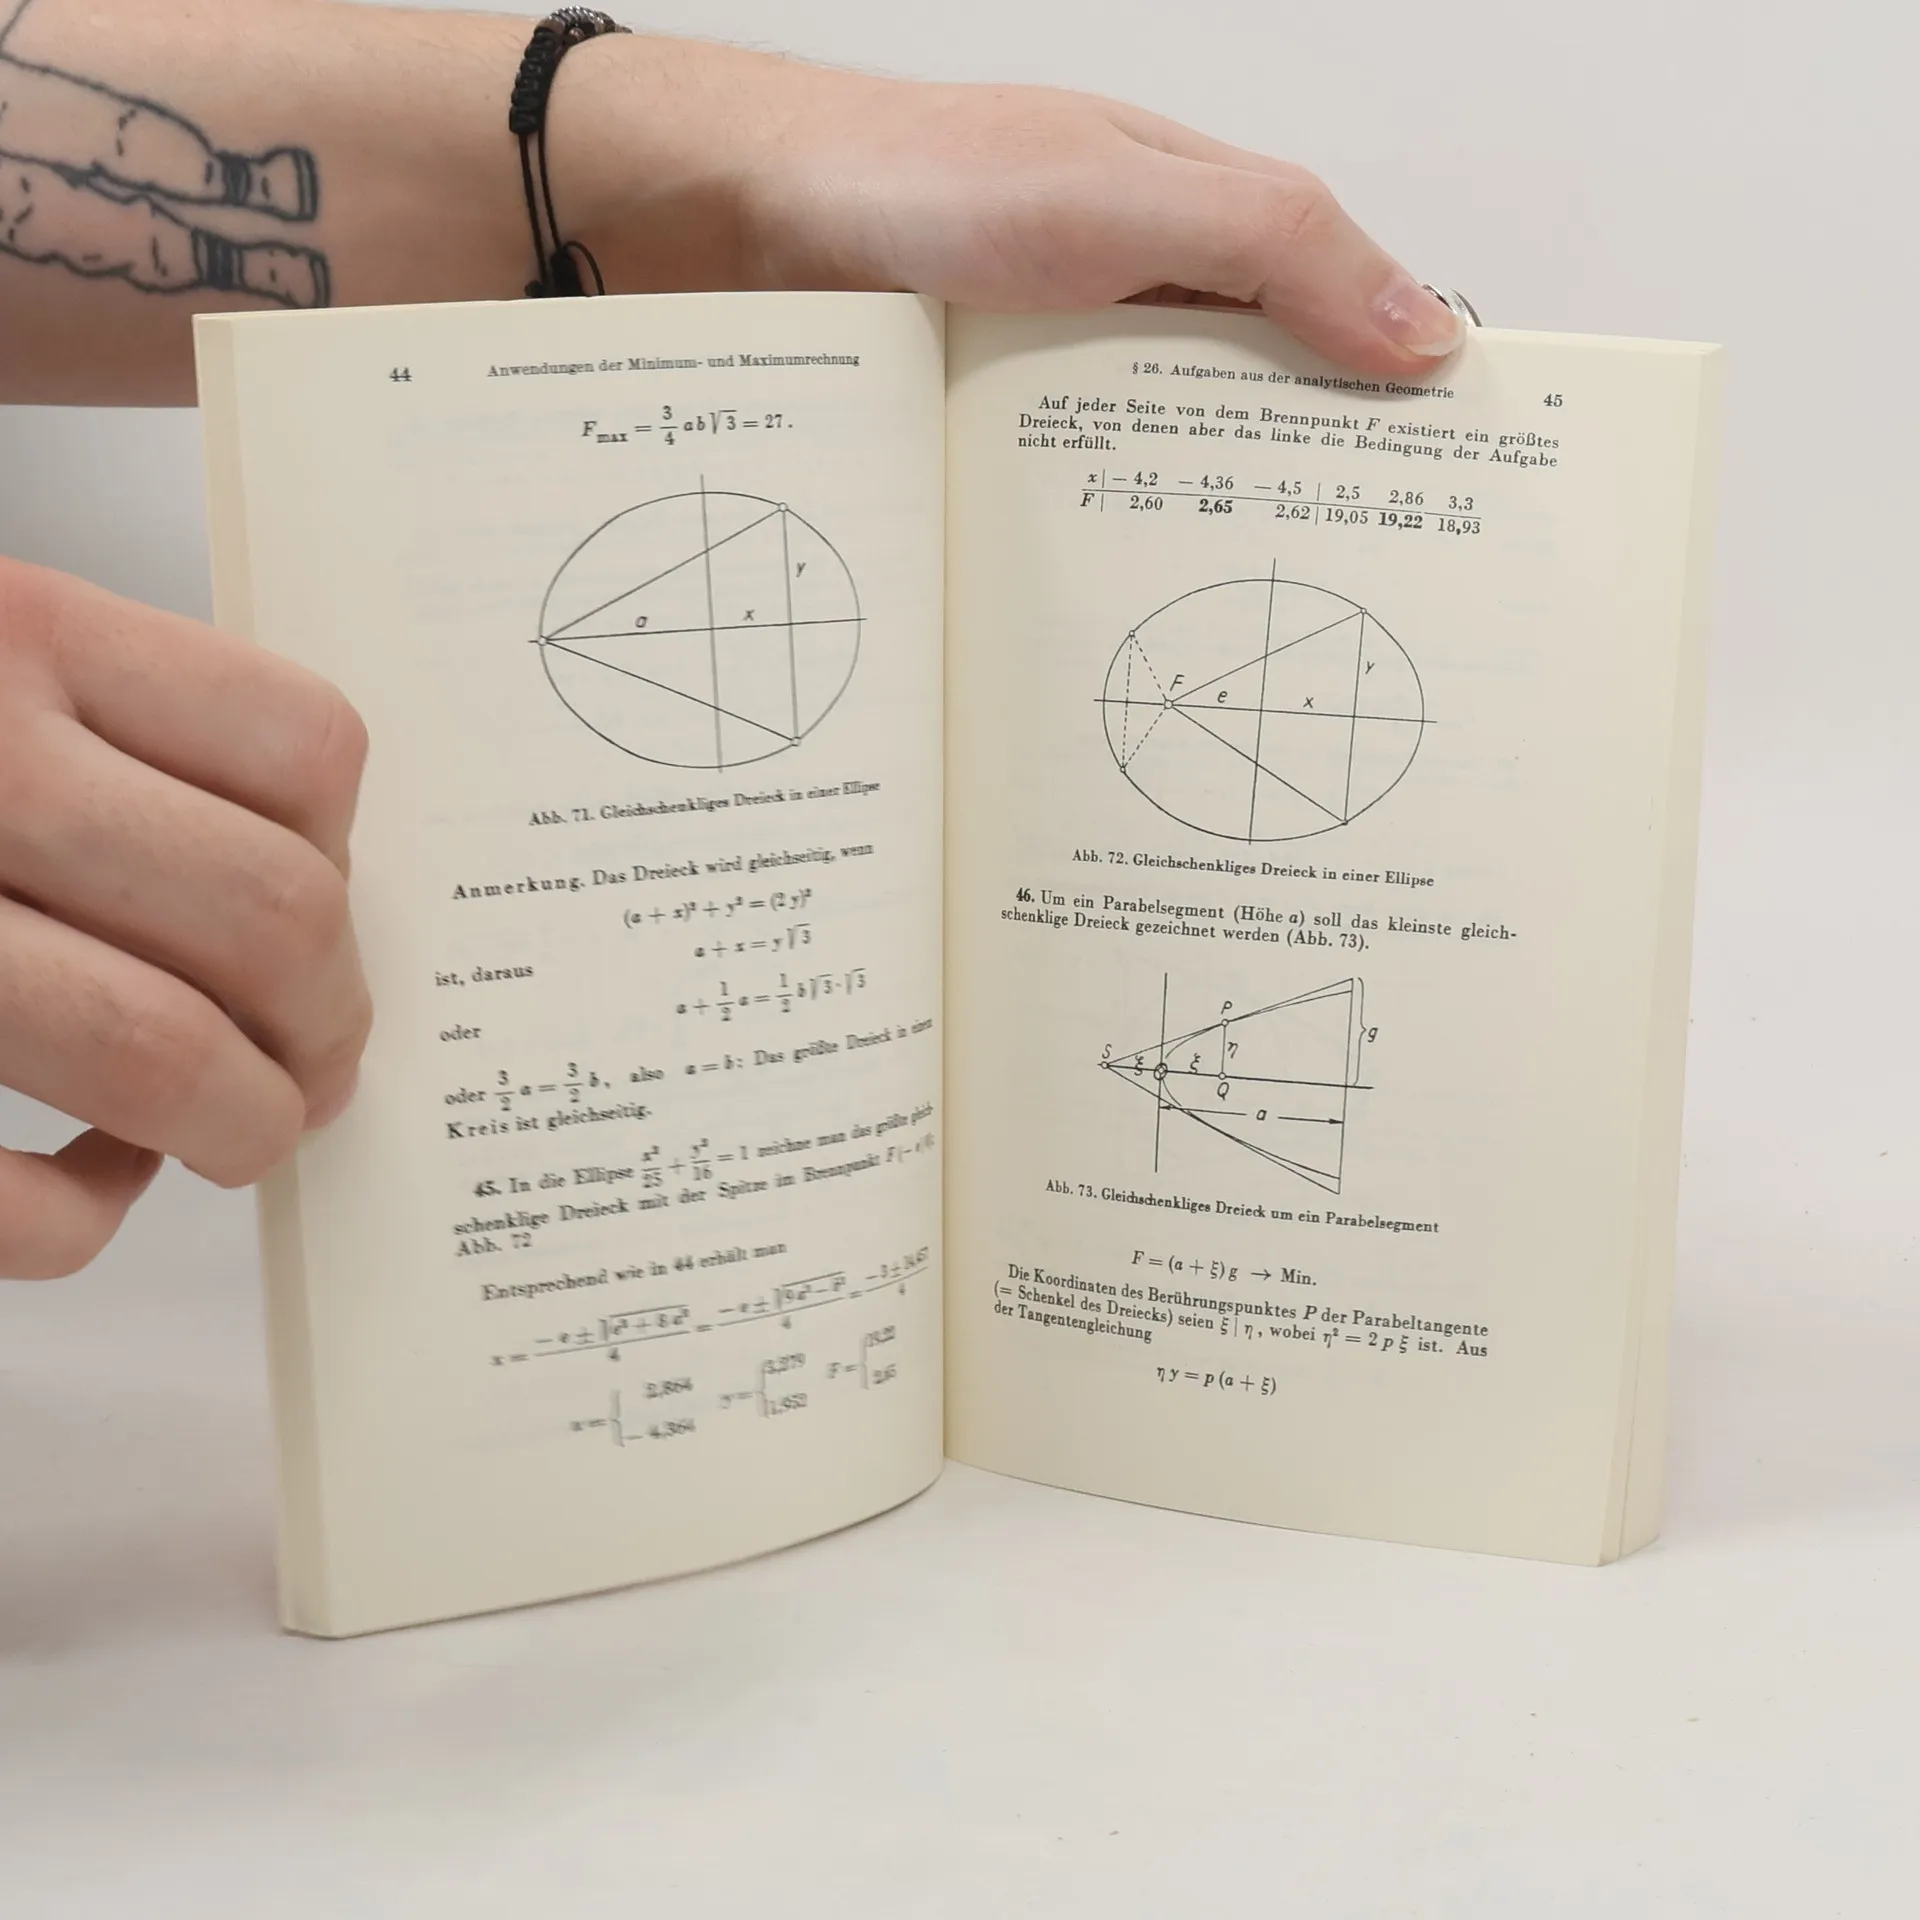 44
Anwendungen der Minimum- und Maximumrechnung
F_max = 3/4 ab√3 = 27.
y
a
x
Abb. 71. Gleichschenkliges Dreieck in einer Ellipse
Anmerkung. Das Dreieck wird gleichseitig, wenn
(a + x)² + y² = (2y)²
a + x = y√3
ist, daraus
a + 1/2 a = 1/2 b√3·√3
oder
oder 3/2 a = 3/2 b, also a = b: Das größte Dreieck in einem
Kreis ist gleichseitig.
45. In die Ellipse x²/25 + y²/16 = 1 zeichne man das größte gleich-
schenklige Dreieck mit der Spitze im Brennpunkt F(− e|0);
Abb. 72
Entsprechend wie in 44 erhält man
x = (− e ± √(e² + 8a²))/4 = (− e ± √(9a² − b²))/4 = (−3 ± 14,457)/4
x = { 2,864 y = { 3,279 F = { 19,22
− 4,364 1,952 2,65
§ 26. Aufgaben aus der analytischen Geometrie
45
Auf jeder Seite von dem Brennpunkt F existiert ein größtes
Dreieck, von denen aber das linke die Bedingung der Aufgabe
nicht erfüllt.
x | − 4,2 − 4,36 − 4,5 | 2,5 2,86 3,3
F | 2,60 2,65 2,62 | 19,05 19,22 18,93
y
F
e
x
Abb. 72. Gleichschenkliges Dreieck in einer Ellipse
46. Um ein Parabelsegment (Höhe a) soll das kleinste gleich-
schenklige Dreieck gezeichnet werden (Abb. 73).
P
g
S
ξ
ξ
η
Q
a
Abb. 73. Gleichschenkliges Dreieck um ein Parabelsegment
F = (a + ξ) g → Min.
Die Koordinaten des Berührungspunktes P der Parabeltangente
(= Schenkel des Dreiecks) seien ξ | η, wobei η² = 2 p ξ ist. Aus
der Tangentengleichung
η y = p (a + ξ)